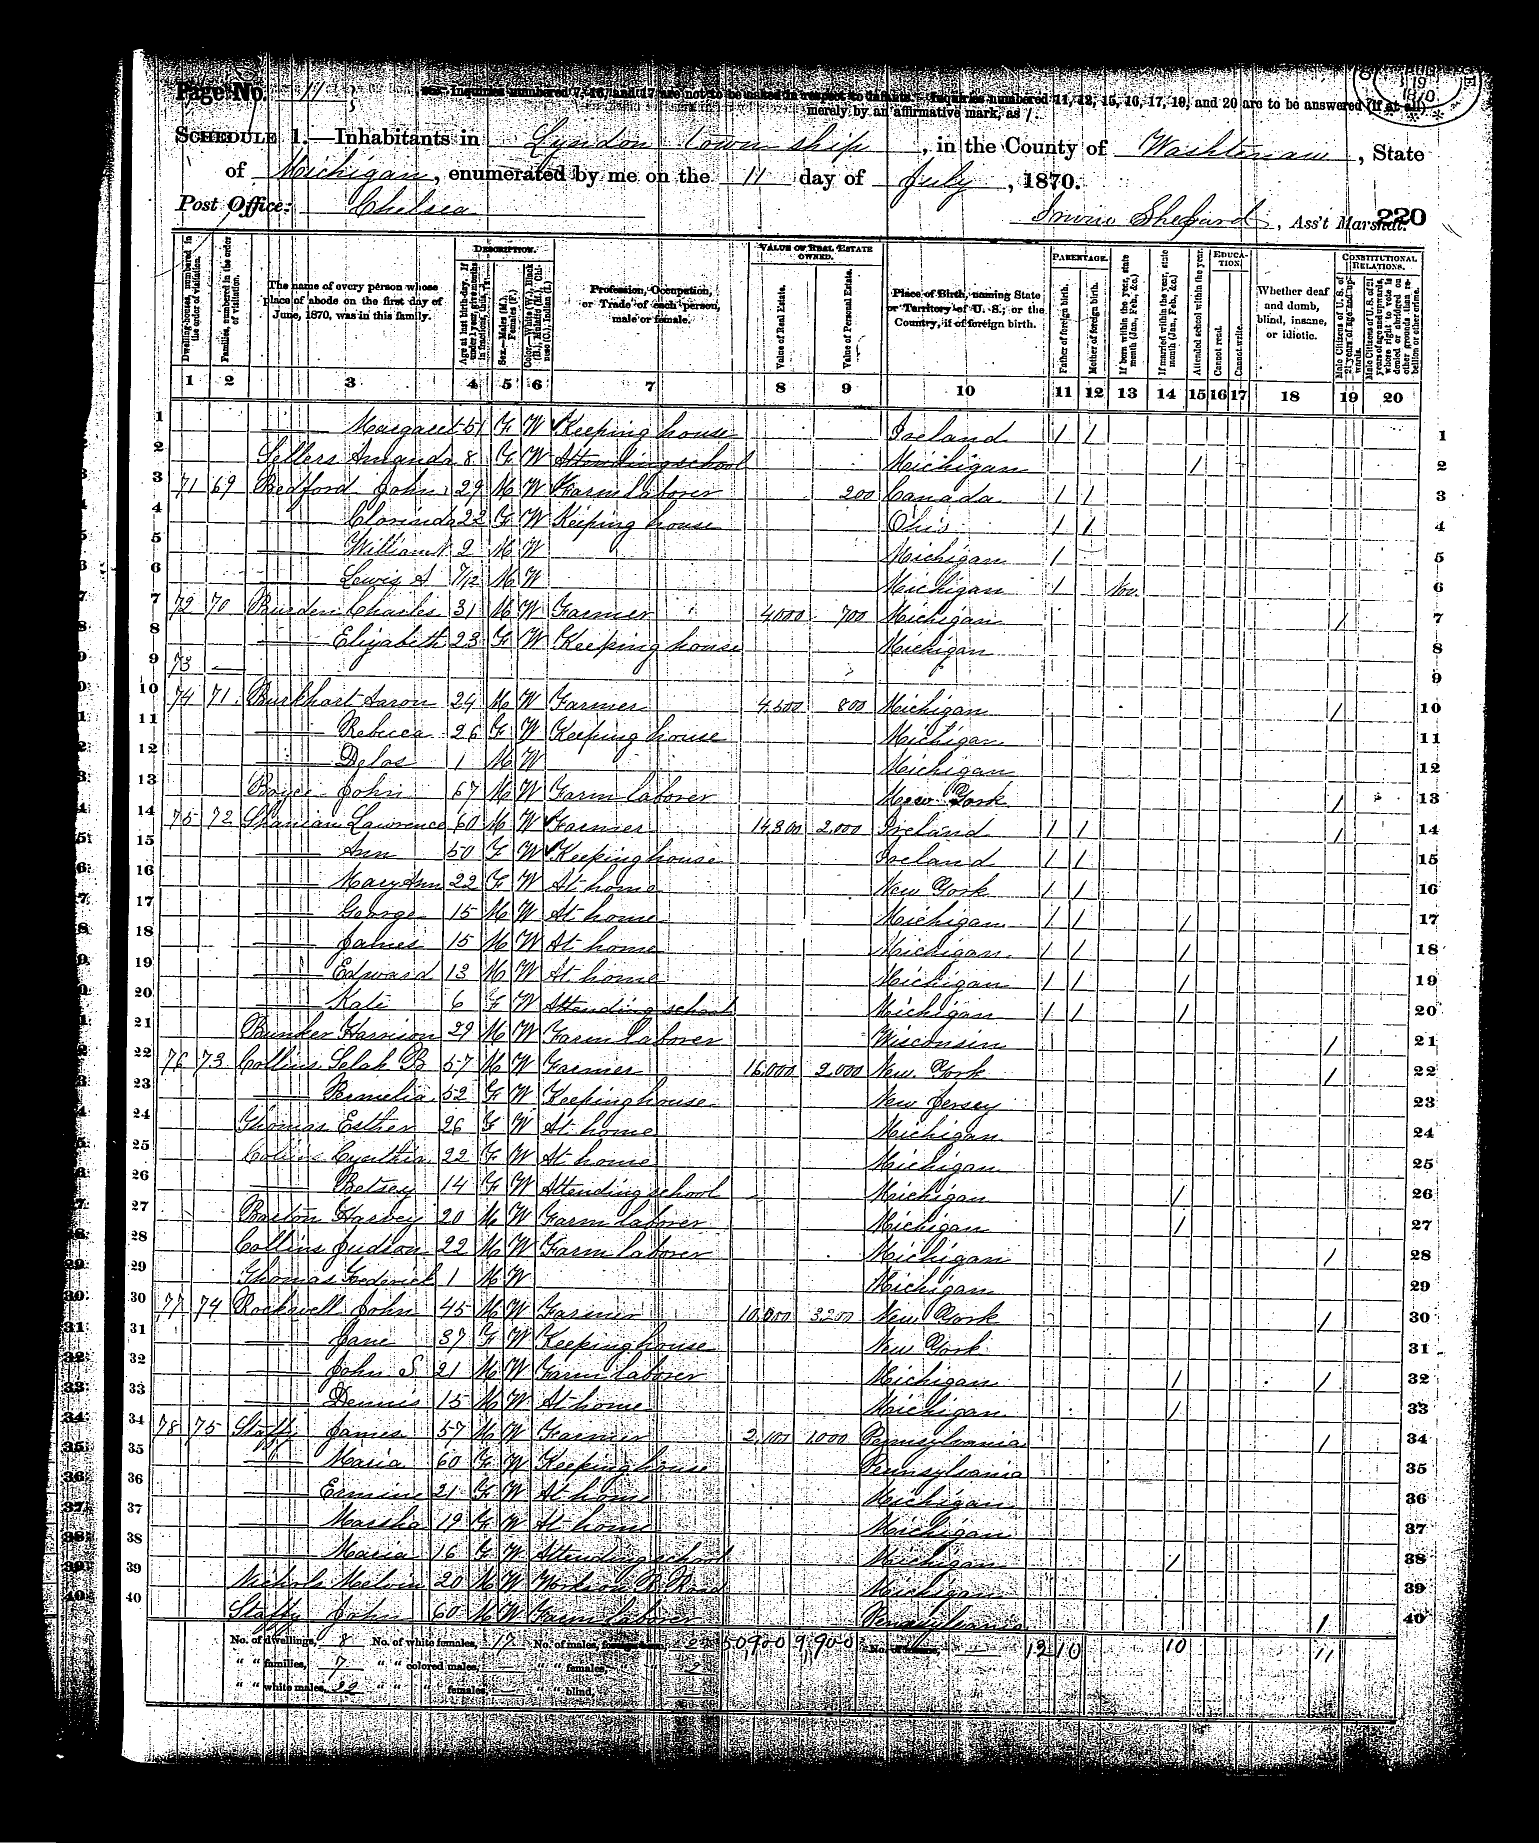 Page No. 11
Inquiries numbered 7, 16, and 17 are not to be asked in respect to infants. Inquiries numbered 11, 12, 15, 16, 17, 19, and 20 are to be answered (if at all)
merely by an affirmative mark, as /.
SCHEDULE 1.—Inhabitants in Lyndon township, in the County of Washtenaw, State
of Michigan, enumerated by me on the 11 day of July, 1870.
Post Office: Chelsea
Irwin Shepard, Ass't Marshal. 220
DESCRIPTION. VALUE OF REAL ESTATE OWNED. PARENTAGE. EDUCATION. CONSTITUTIONAL RELATIONS.
Dwelling-houses, numbered in the order of visitation. Families, numbered in the order of visitation. The name of every person whose place of abode on the first day of June, 1870, was in this family. Age at last birth-day. Sex.—Males (M.), Females (F.) Profession, Occupation, or Trade of each person, male or female. Value of Real Estate. Value of Personal Estate. Place of Birth, naming State or Territory of U. S.; or the Country, if of foreign birth. Father of foreign birth. Mother of foreign birth. If born within the year, state month (Jan., Feb., &c.) If married within the year, state month (Jan., Feb., &c.) Attended school within the year. Cannot read. Cannot write. Whether deaf and dumb, blind, insane, or idiotic. Male Citizens of U. S. of 21 years of age and upwards.
1 2 3 4 5 6 7 8 9 10 11 12 13 14 15 16 17 18 19 20
1 — Margaret 51 F W Keeping house Ireland / / 1
2 Sellers Amanda 8 F W Attending school Michigan / 2
3 71 69 Bedford John 29 M W Farm laborer 200 Canada / / 3
4 — Clorinda 22 F W Keeping house Ohio / / 4
5 — William 2 M W Michigan / 5
6 — Lewis A 7/12 M W Michigan / Nov. 6
7 72 70 Burden Charles 31 M W Farmer 4000 700 Michigan / 7
8 — Elizabeth 23 F W Keeping house Michigan 8
9 73 — 9
10 74 71 Burkhart Aaron 24 M W Farmer 4,500 800 Michigan / 10
11 — Rebecca 26 F W Keeping house Michigan 11
12 — Delos 1 M W Michigan 12
13 Boyce John 67 M W Farm laborer New York / 13
14 75 72 Shanian Lawrence 60 M W Farmer 14,300 2,000 Ireland / / / 14
15 — Ann 50 F W Keeping house Ireland / / 15
16 — Mary Ann 22 F W At home New York / / 16
17 — George 15 M W At home Michigan / / / 17
18 — James 15 M W At home Michigan / / / 18
19 — Edward 13 M W At home Michigan / / / 19
20 — Kate 6 F W Attending school Michigan / / / 20
21 Bunker Harrison 29 M W Farm laborer Wisconsin / 21
22 76 73 Collins Selah B 57 M W Farmer 16,000 2,000 New York / 22
23 — Permelia 52 F W Keeping house New Jersey 23
24 Thomas Esther 26 F W At home Michigan 24
25 Collins Cynthia 22 F W At home Michigan 25
26 — Betsey 14 F W Attending school Michigan / 26
27 Barton Harvey 20 M W Farm laborer Michigan / 27
28 Collins Judson 22 M W Farm laborer Michigan / 28
29 Thomas Frederick 1 M W Michigan 29
30 77 74 Rockwell John 45 M W Farmer 10,000 3200 New York / 30
31 — Jane 37 F W Keeping house New York 31
32 — John S 21 M W Farm laborer Michigan / / 32
33 — Dennis 15 M W At home Michigan / 33
34 78 75 Staffy James 57 M W Farmer 2,100 1000 Pennsylvania / 34
35 — Maria 60 F W Keeping house Pennsylvania 35
36 — Ermine 21 F W At home Michigan 36
37 — Marsha 19 F W At home Michigan 37
38 — Maria 16 F W Attending school Michigan / 38
39 Nichols Melvin 20 M W Works on R. Road Michigan 39
40 Staffy John 60 M W Farm laborer Pennsylvania / 40
No. of dwellings, 8 No. of white females, 17 No. of males, foreign born, 2 50,900 9,900 12 10 10 11
" " families, 7 " " colored males, — " " females, 2
" " white males, 22 " " " females, — " " blind,